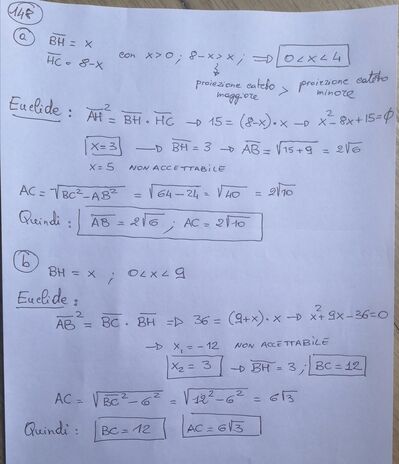 148
a) BH = x con x>0 ; 8-x>x ; ⟹ 0<x<4
HC = 8-x
proiezione cateto maggiore > proiezione cateto minore
Euclide : AH² = BH · HC → 15 = (8-x)·x → x²-8x+15=0
x=3 → BH = 3 → AB = √15+9 = 2√6
x=5 NON ACCETTABILE
AC = √BC²-AB² = √64-24 = √40 = 2√10
Quindi : AB = 2√6 ; AC = 2√10
b) BH = x ; 0<x<9
Euclide :
AB² = BC · BH ⟹ 36 = (9+x)·x → x²+9x-36=0
→ x₁ = -12 NON ACCETTABILE
x₂ = 3 → BH = 3 ; BC = 12
AC = √BC²-6² = √12²-6² = 6√3
Quindi : BC = 12 AC = 6√3